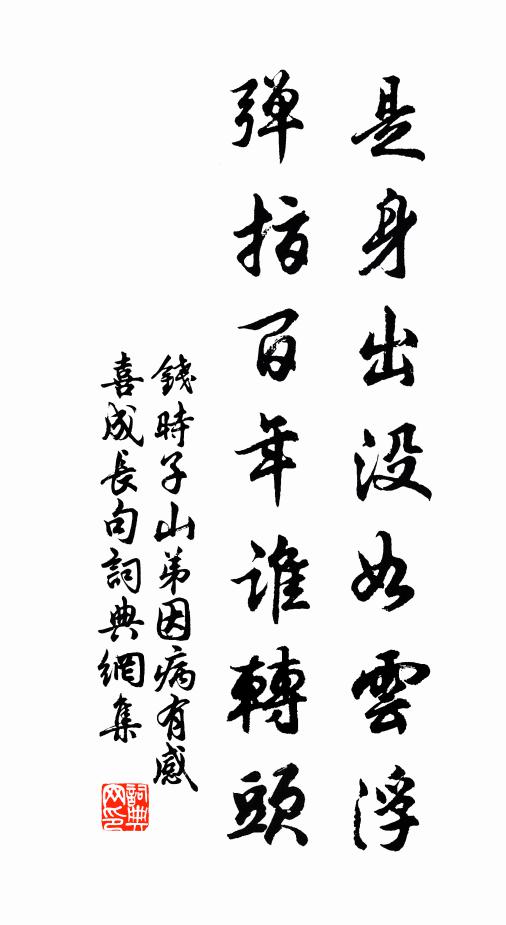 是身出没如雲浮
弹指百年誰轉頭
錢時子山弟因病有感
喜成長句詞典網集
詞典
网印